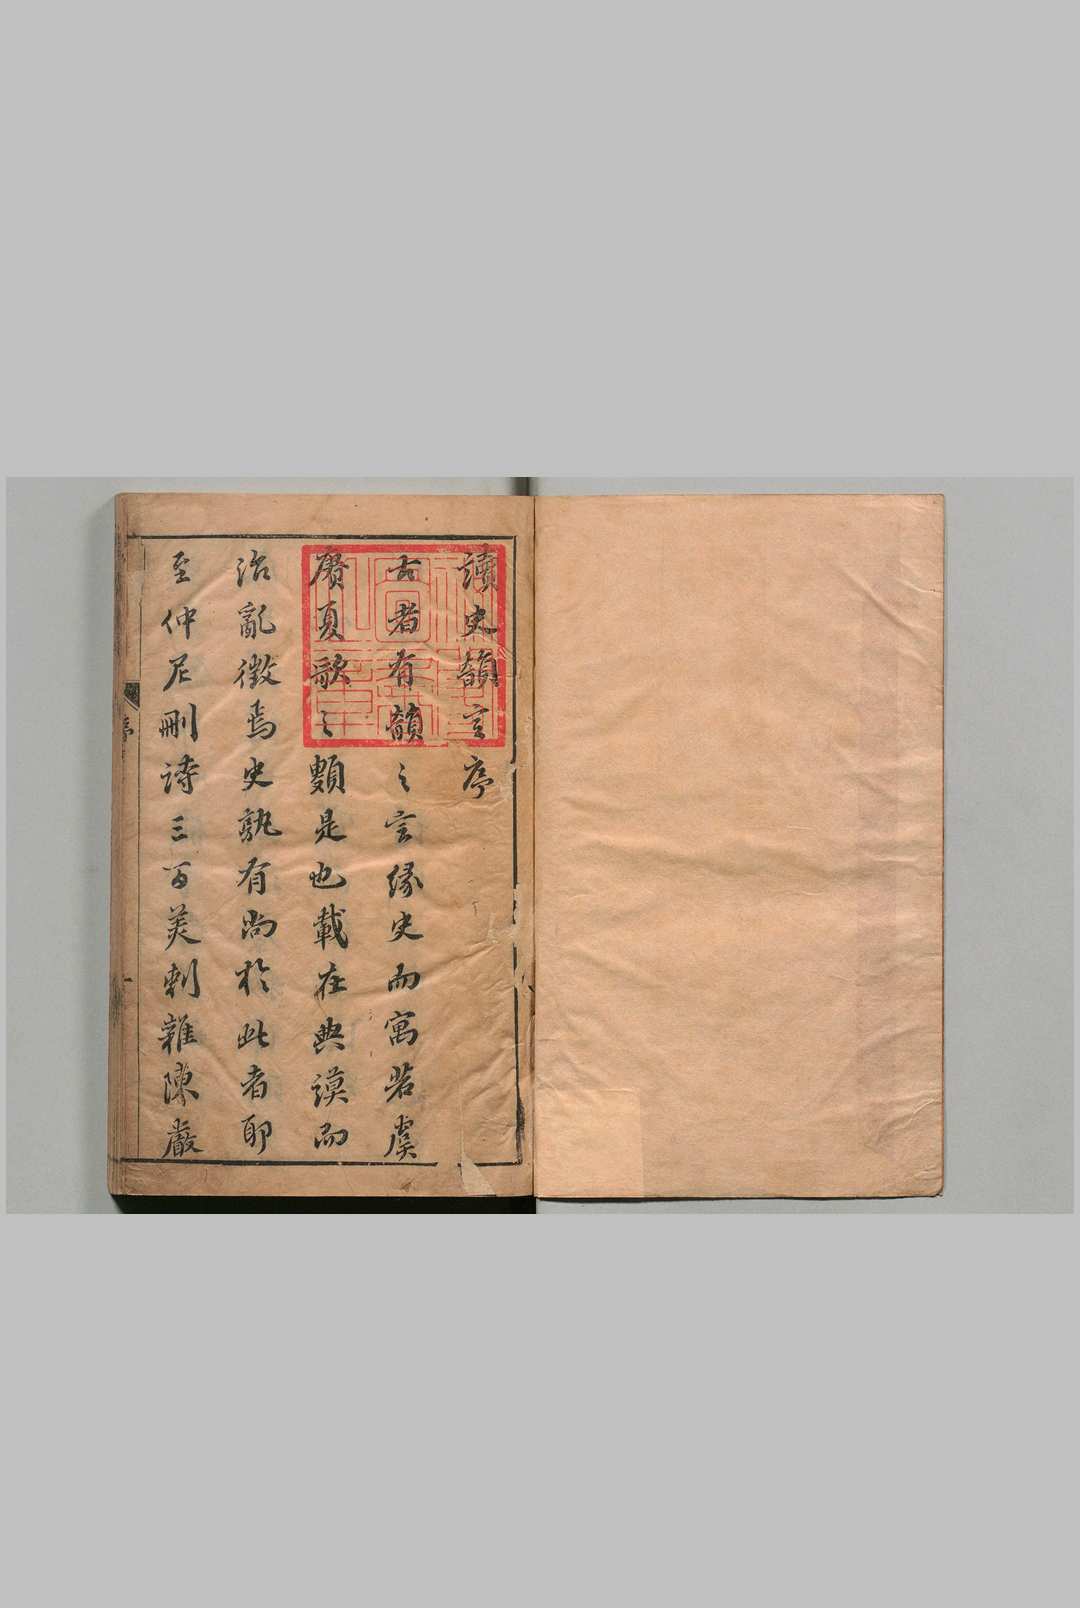 讀史韻言序
古者有韻之言緣史而寓若虞
賡夏歌之類是也載在典謨而
治亂徵焉史孰有尚於此者耶
至仲尼刪詩三百美刺雜陳嚴
序
一